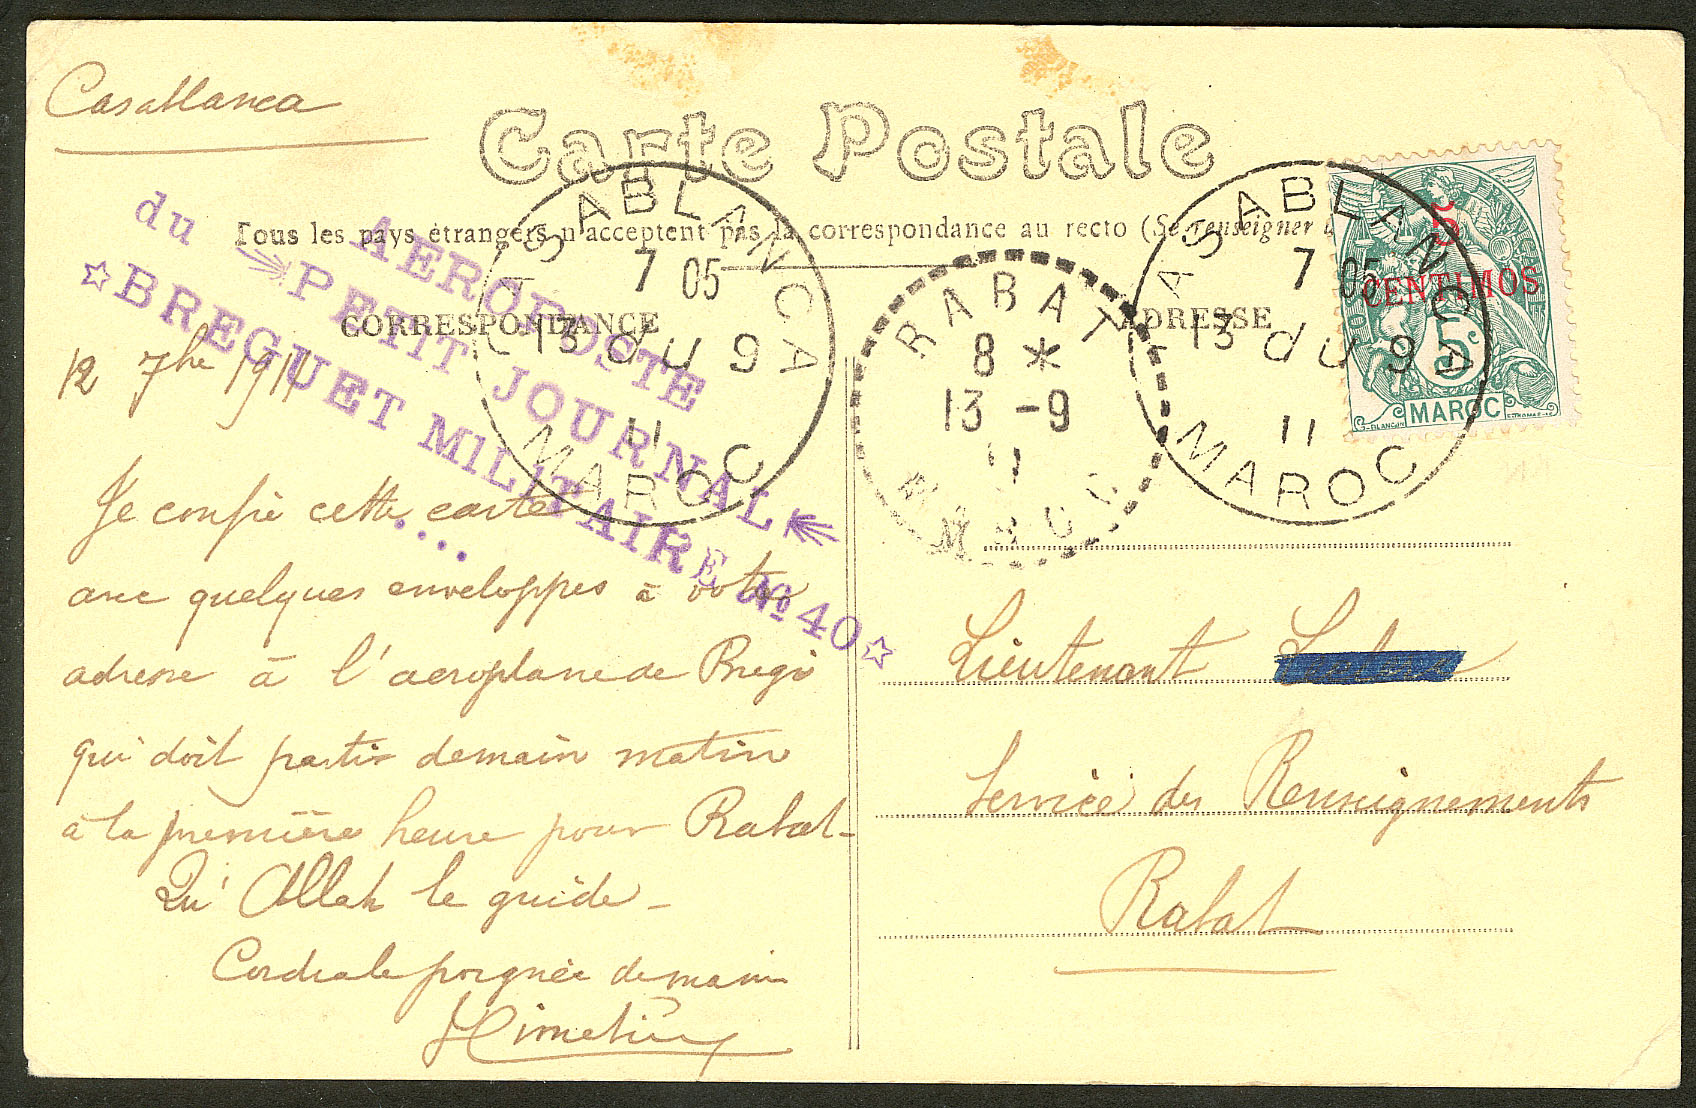 Casablanca
Carte Postale
Tous les pays étrangers n'acceptent pas la correspondance au recto (Se renseigner
CORRESPONDANCE
ADRESSE
AEROPOSTE
du PETIT JOURNAL
☆BREGUET MILITAIRE No 40☆
CASABLANCA
7 05
13 du 9
11
MAROC
RABAT
8 *
13 -9
11
MAROC
CASABLANCA
7 05
13 du 9
11
MAROC
5
CENTIMOS
5c
MAROC
12 7bre 1911
Je confie cette carte
avec quelques enveloppes à votre
adresse à l'aeroplane de Bregi
qui doit partir demain matin
à la première heure pour Rabat-
Qu'Allah le guide -
Cordiale poignée de main
Lieutenant
Service des Renseignements
Rabat